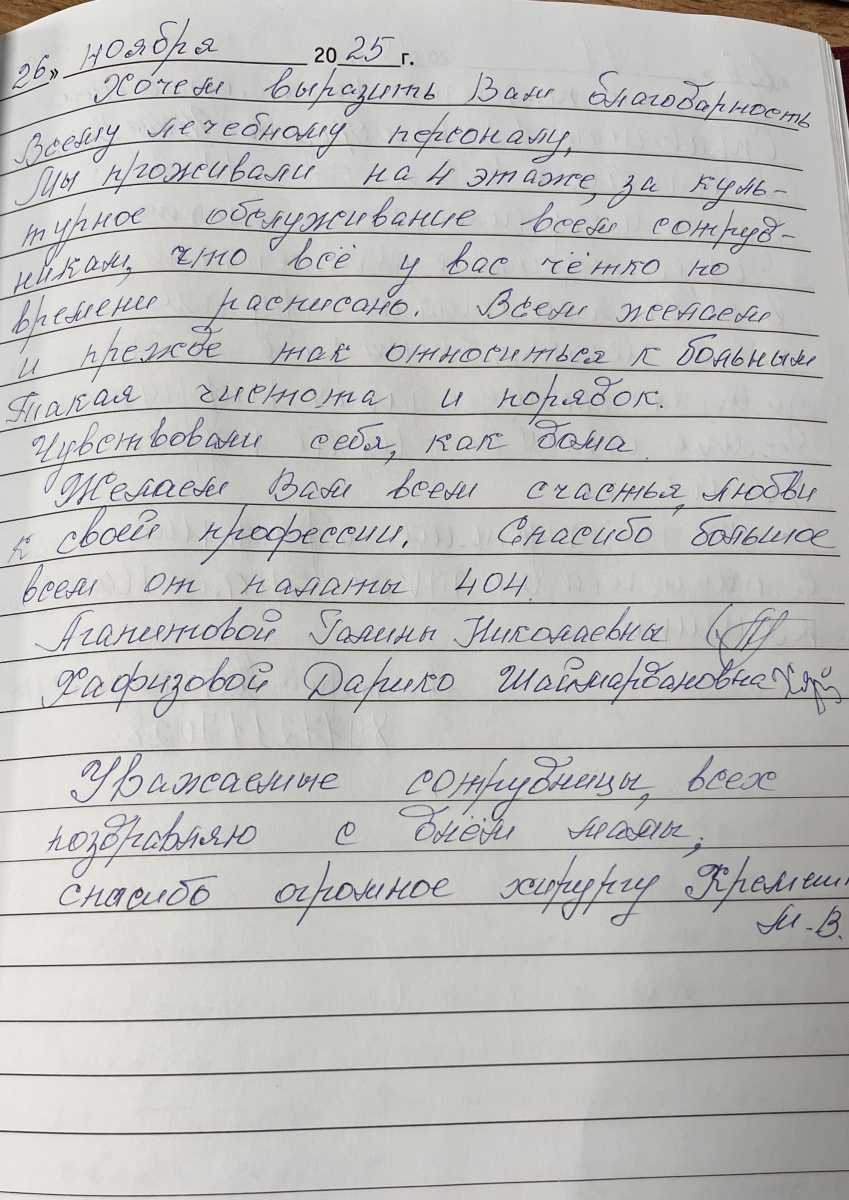 26» ноября 2025 г.
Хочем выразить Вам благодарность
Всему лечебному персоналу,
Мы проживали на 4 этаже, за куль-
турное обслуживание всем сотруд-
никам, что всё у вас чётко по
времени расписано. Всем желаем
и прежде так относиться к больным
Такая чистота и порядок.
Чувствовали себя, как дома.
Желаем Вам всем счастья, любви
к своей профессии. Спасибо большое
всем от палаты 404.
Агапитовой Галины Николаевны
Хафизовой Дарико Шаймардановна
Уважаемые сотрудницы, всех
поздравляю с днём мамы,
спасибо огромное хирургу
М.В.